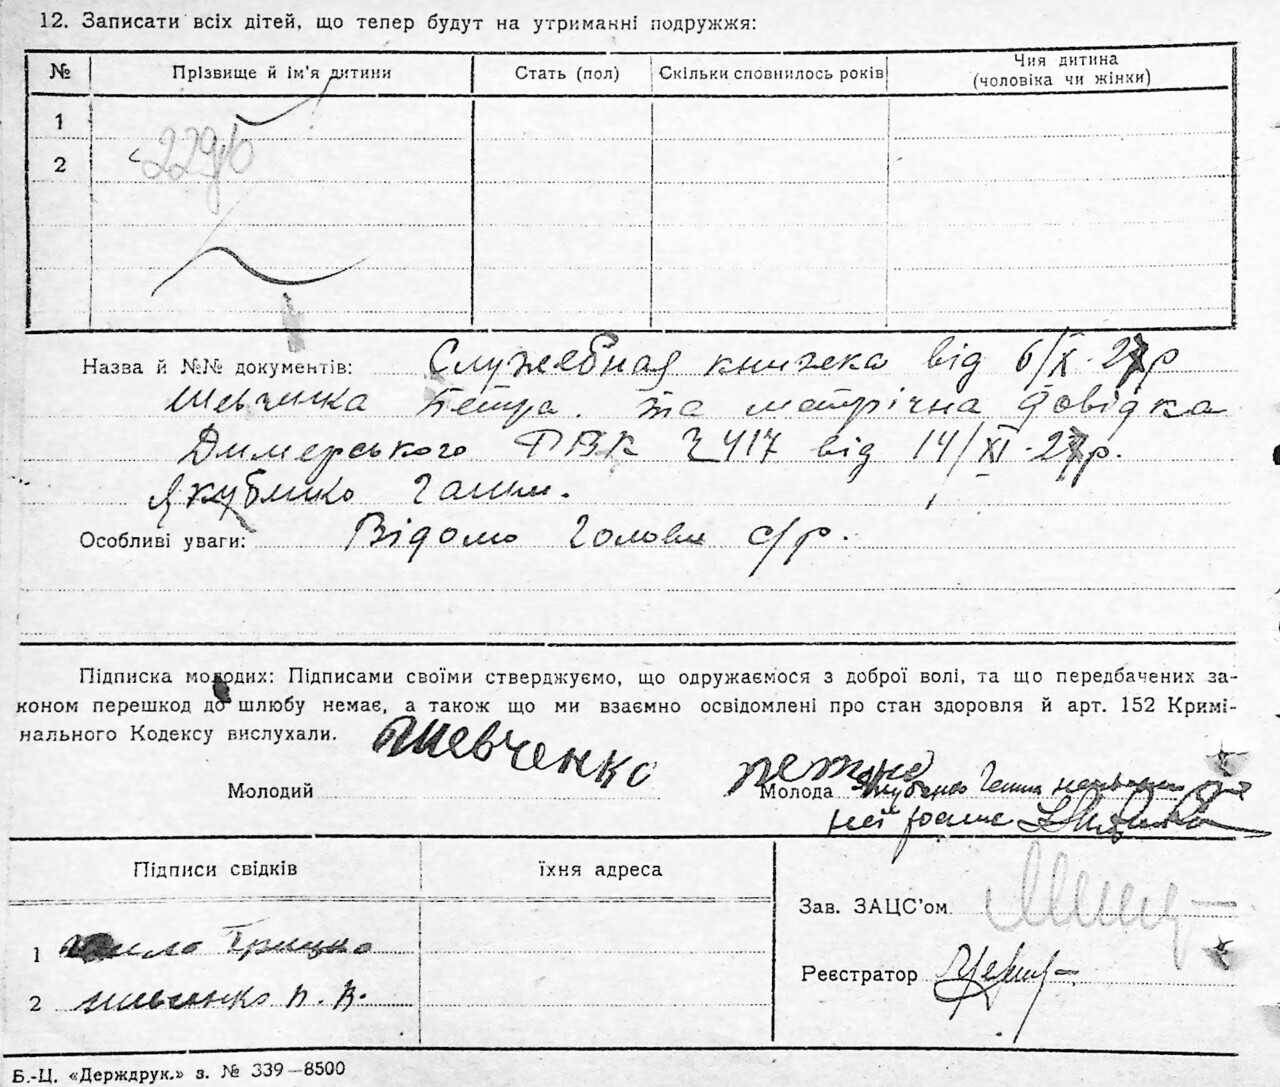 12. Записати всіх дітей, що тепер будут на утриманні подружжя:
№ Прізвище й ім'я дитини Стать (пол) Скільки сповнилось років Чия дитина (чоловіка чи жінки)
1
2
Назва й №№ документів: Служебная книжка від 6/X-27р
Шевченка Петра. та метрічна довідка
Димерського РВК 2417 від 14/XI-27р.
Якубенко Ганни.
Особливі уваги: Відомо Голови с/р.
Підписка молодих: Підписами своїми стверджуємо, що одружаємося з доброї волі, та що передбачених за-
коном перешкод до шлюбу немає, а також що ми взаємно освідомлені про стан здоровля й арт. 152 Кримі-
нального Кодексу вислухали.
Молодий Шевченко Петро
Молода Якубенко Ганна
Підписи свідків їхня адреса
Зав. ЗАЦС'ом
1 Грицко
Реєстратор
2 Шевченко П. В.
Б.-Ц. «Держдрук.» з. № 339—8500